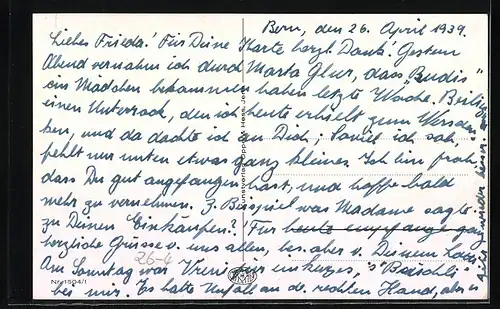 Bern, den 26. April 1939.
Liebes Frieda! Für Deine Karte herzl. Dank! Gestern
Abend vernahm ich durch Marta Glur, dass "Rudis"
ein Mädchen bekommen haben letzte Woche.
einen Unterrock, den ich heute erhielt zum
ken, und da dachte ich an Dich; Soviel ich sah,
fehlt nur unten etwas ganz kleines. Ich bin froh,
dass Du gut angefangen hast, und hoffe bald
mehr zu vernehmen. Z. Beispiel was Madame sagte
zu Deinen Einkäufen? Für heute empfange ganz
herzliche Grüsse v. uns allen, bes. aber v. Deinem
26-4
Am Sonntag war Vreni auf ein kurzes,
bei mir. Es hatte Unfall an der rechten Hand, also
Nr. 1504/1